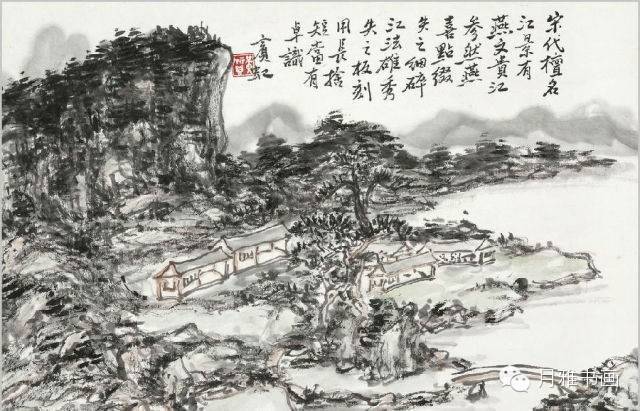 宋代檀名
江景有
燕文貴江
參然燕
喜點綴
失之細碎
江法雄秀
失之板刻
用長捨
短當有
卓識
賓虹
月雅书画